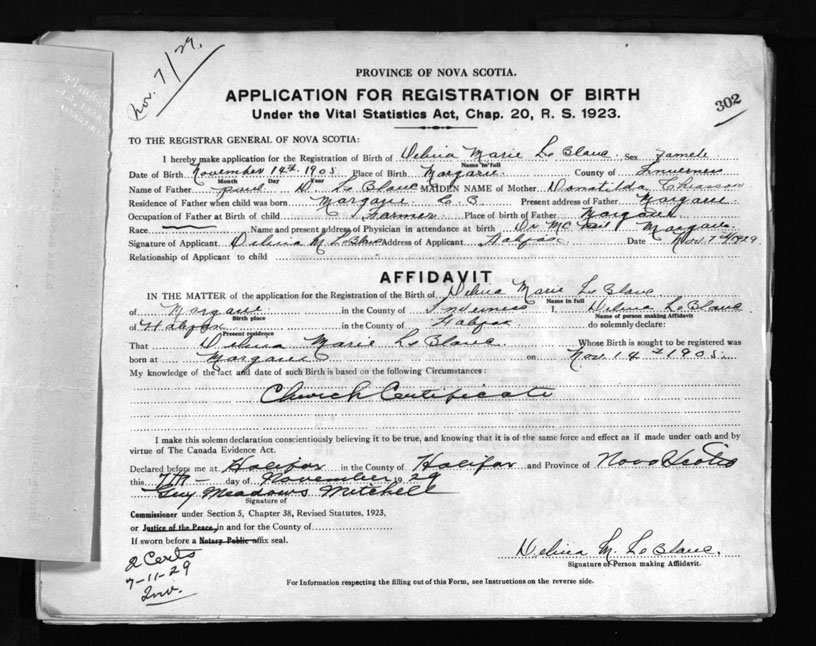 Nov. 7/29.
302
PROVINCE OF NOVA SCOTIA.
APPLICATION FOR REGISTRATION OF BIRTH
Under the Vital Statistics Act, Chap. 20, R. S. 1923.
TO THE REGISTRAR GENERAL OF NOVA SCOTIA:
I hereby make application for the Registration of Birth of Delina Marie Le Blanc Sex Female
Name in full
Date of Birth November 14th 1905 Place of Birth Margaree County of Inverness
Month Day Year
Name of Father D. Le Blanc MAIDEN NAME of Mother Donatilda Chiasson
Residence of Father when child was born Margaree C. B. Present address of Father Margaree
Occupation of Father at Birth of child Farmer Place of birth of Father Margaree
Race Name and present address of Physician in attendance at birth Dr Mc Neil Margaree
Signature of Applicant Delina M. Le Blanc Address of Applicant Halifax Date Nov. 7th/1929
Relationship of Applicant to child
AFFIDAVIT
IN THE MATTER of the application for the Registration of the Birth of Delina Marie Le Blanc
Name in full
of Margaree in the County of Inverness I, Delina Le Blanc
Birth place Name of person making Affidavit
of Halifax in the County of Halifax do solemnly declare:
Present residence
That Delina Marie Le Blanc Whose Birth is sought to be registered was
born at Margaree on Nov. 14th 1905.
My knowledge of the fact and date of such Birth is based on the following Circumstances:
Church Certificate
I make this solemn declaration conscientiously believing it to be true, and knowing that it is of the same force and effect as if made under oath and by
virtue of The Canada Evidence Act.
Declared before me at Halifax in the County of Halifax and Province of Nova Scotia
this 7th day of November 1929
Guy Meadows Mitchell
Signature of
Commissioner under Section 5, Chapter 38, Revised Statutes, 1923,
or Justice of the Peace, in and for the County of
If sworn before a Notary Public affix seal.
2 Certs
7-11-29
Inv.
Delina M. Le Blanc.
Signature of Person making Affidavit.
For Information respecting the filling out of this Form, see Instructions on the reverse side.